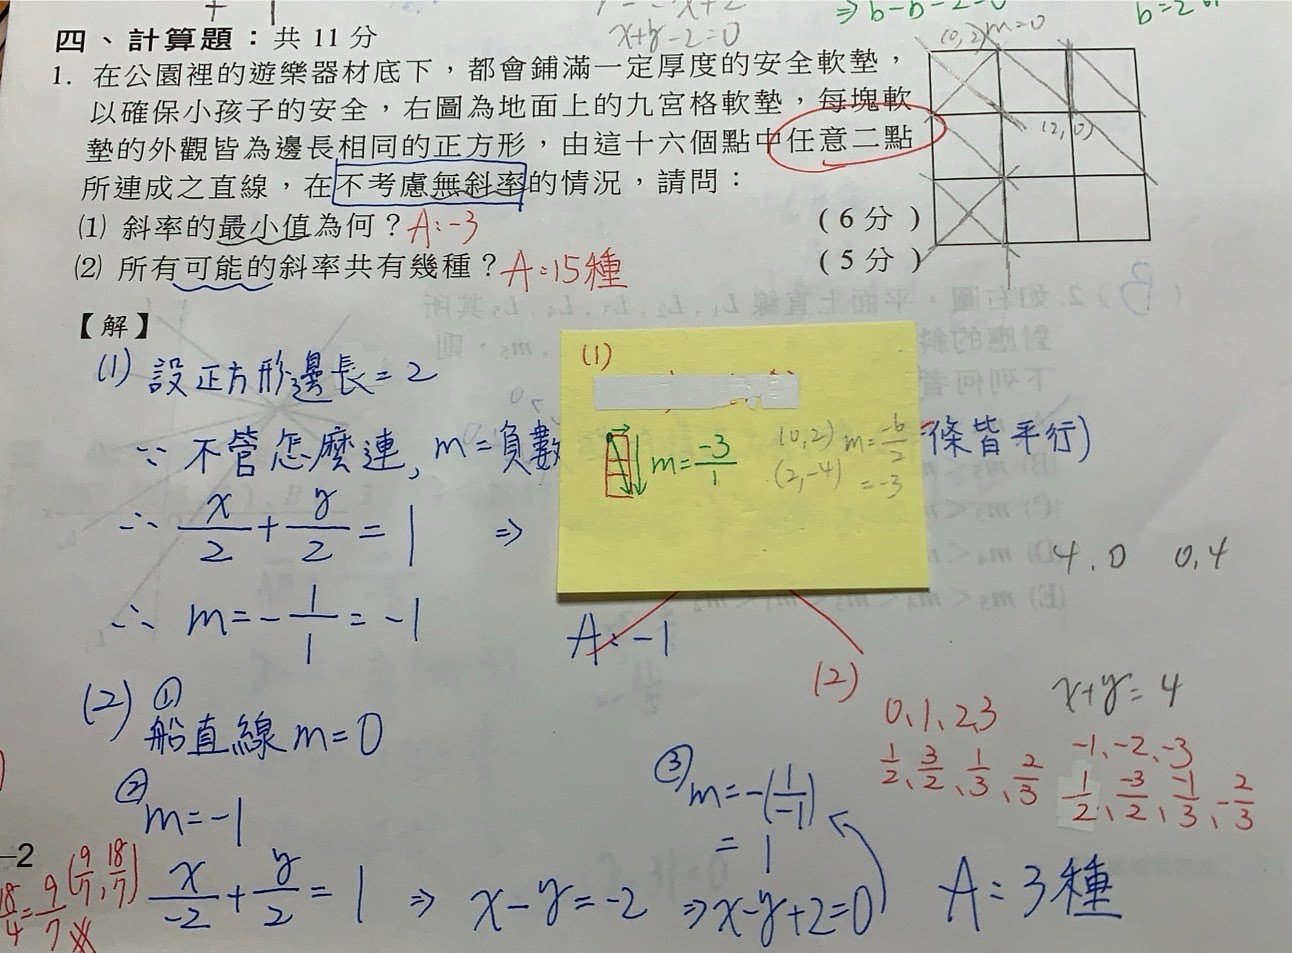 x+y-2=0
⇒b-b-2=0
b=2
四、計算題：共 11 分
1. 在公園裡的遊樂器材底下，都會鋪滿一定厚度的安全軟墊，
以確保小孩子的安全，右圖為地面上的九宮格軟墊，每塊軟
墊的外觀皆為邊長相同的正方形，由這十六個點中任意二點
所連成之直線，在不考慮無斜率的情況，請問：
(1) 斜率的最小值為何？A:-3
(6分)
(2) 所有可能的斜率共有幾種？A:15種
(5分)
(0,2) m=0
(2,0)
【解】
(1) 設正方形邊長=2
∵ 不管怎麼連, m=負數
條皆平行)
∴ x/2 + y/2 = 1 ⇒
∴ m=-1/1=-1
A:-1
(1)
m=-3/1
(0,2) m=-6/2
(2,-4) =-3
4,0 0,4
x+y=4
(2)
0、1、2、3
1/2、3/2、1/3、2/3
-1、-2、-3
1/2、-3/2、-1/3、-2/3
(2) ①
船直線 m=0
②
m=-1
x/-2 + y/2 = 1 ⇒ x-y=-2 ⇒x-y+2=0
③ m=-(1/-1)
=1
A:3種
-2
(9/7, 18/7)
18/4=9/7